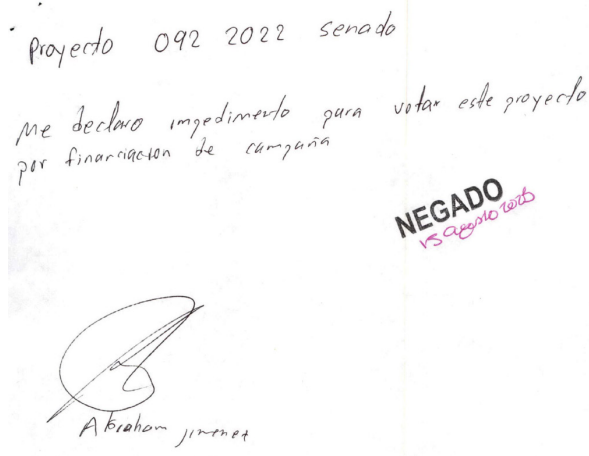 Proyecto 092 2022 senado
Me declaro impedimento para votar este proyecto
por financiacion de campaña
NEGADO
15 agosto 2023
Abraham jimenez